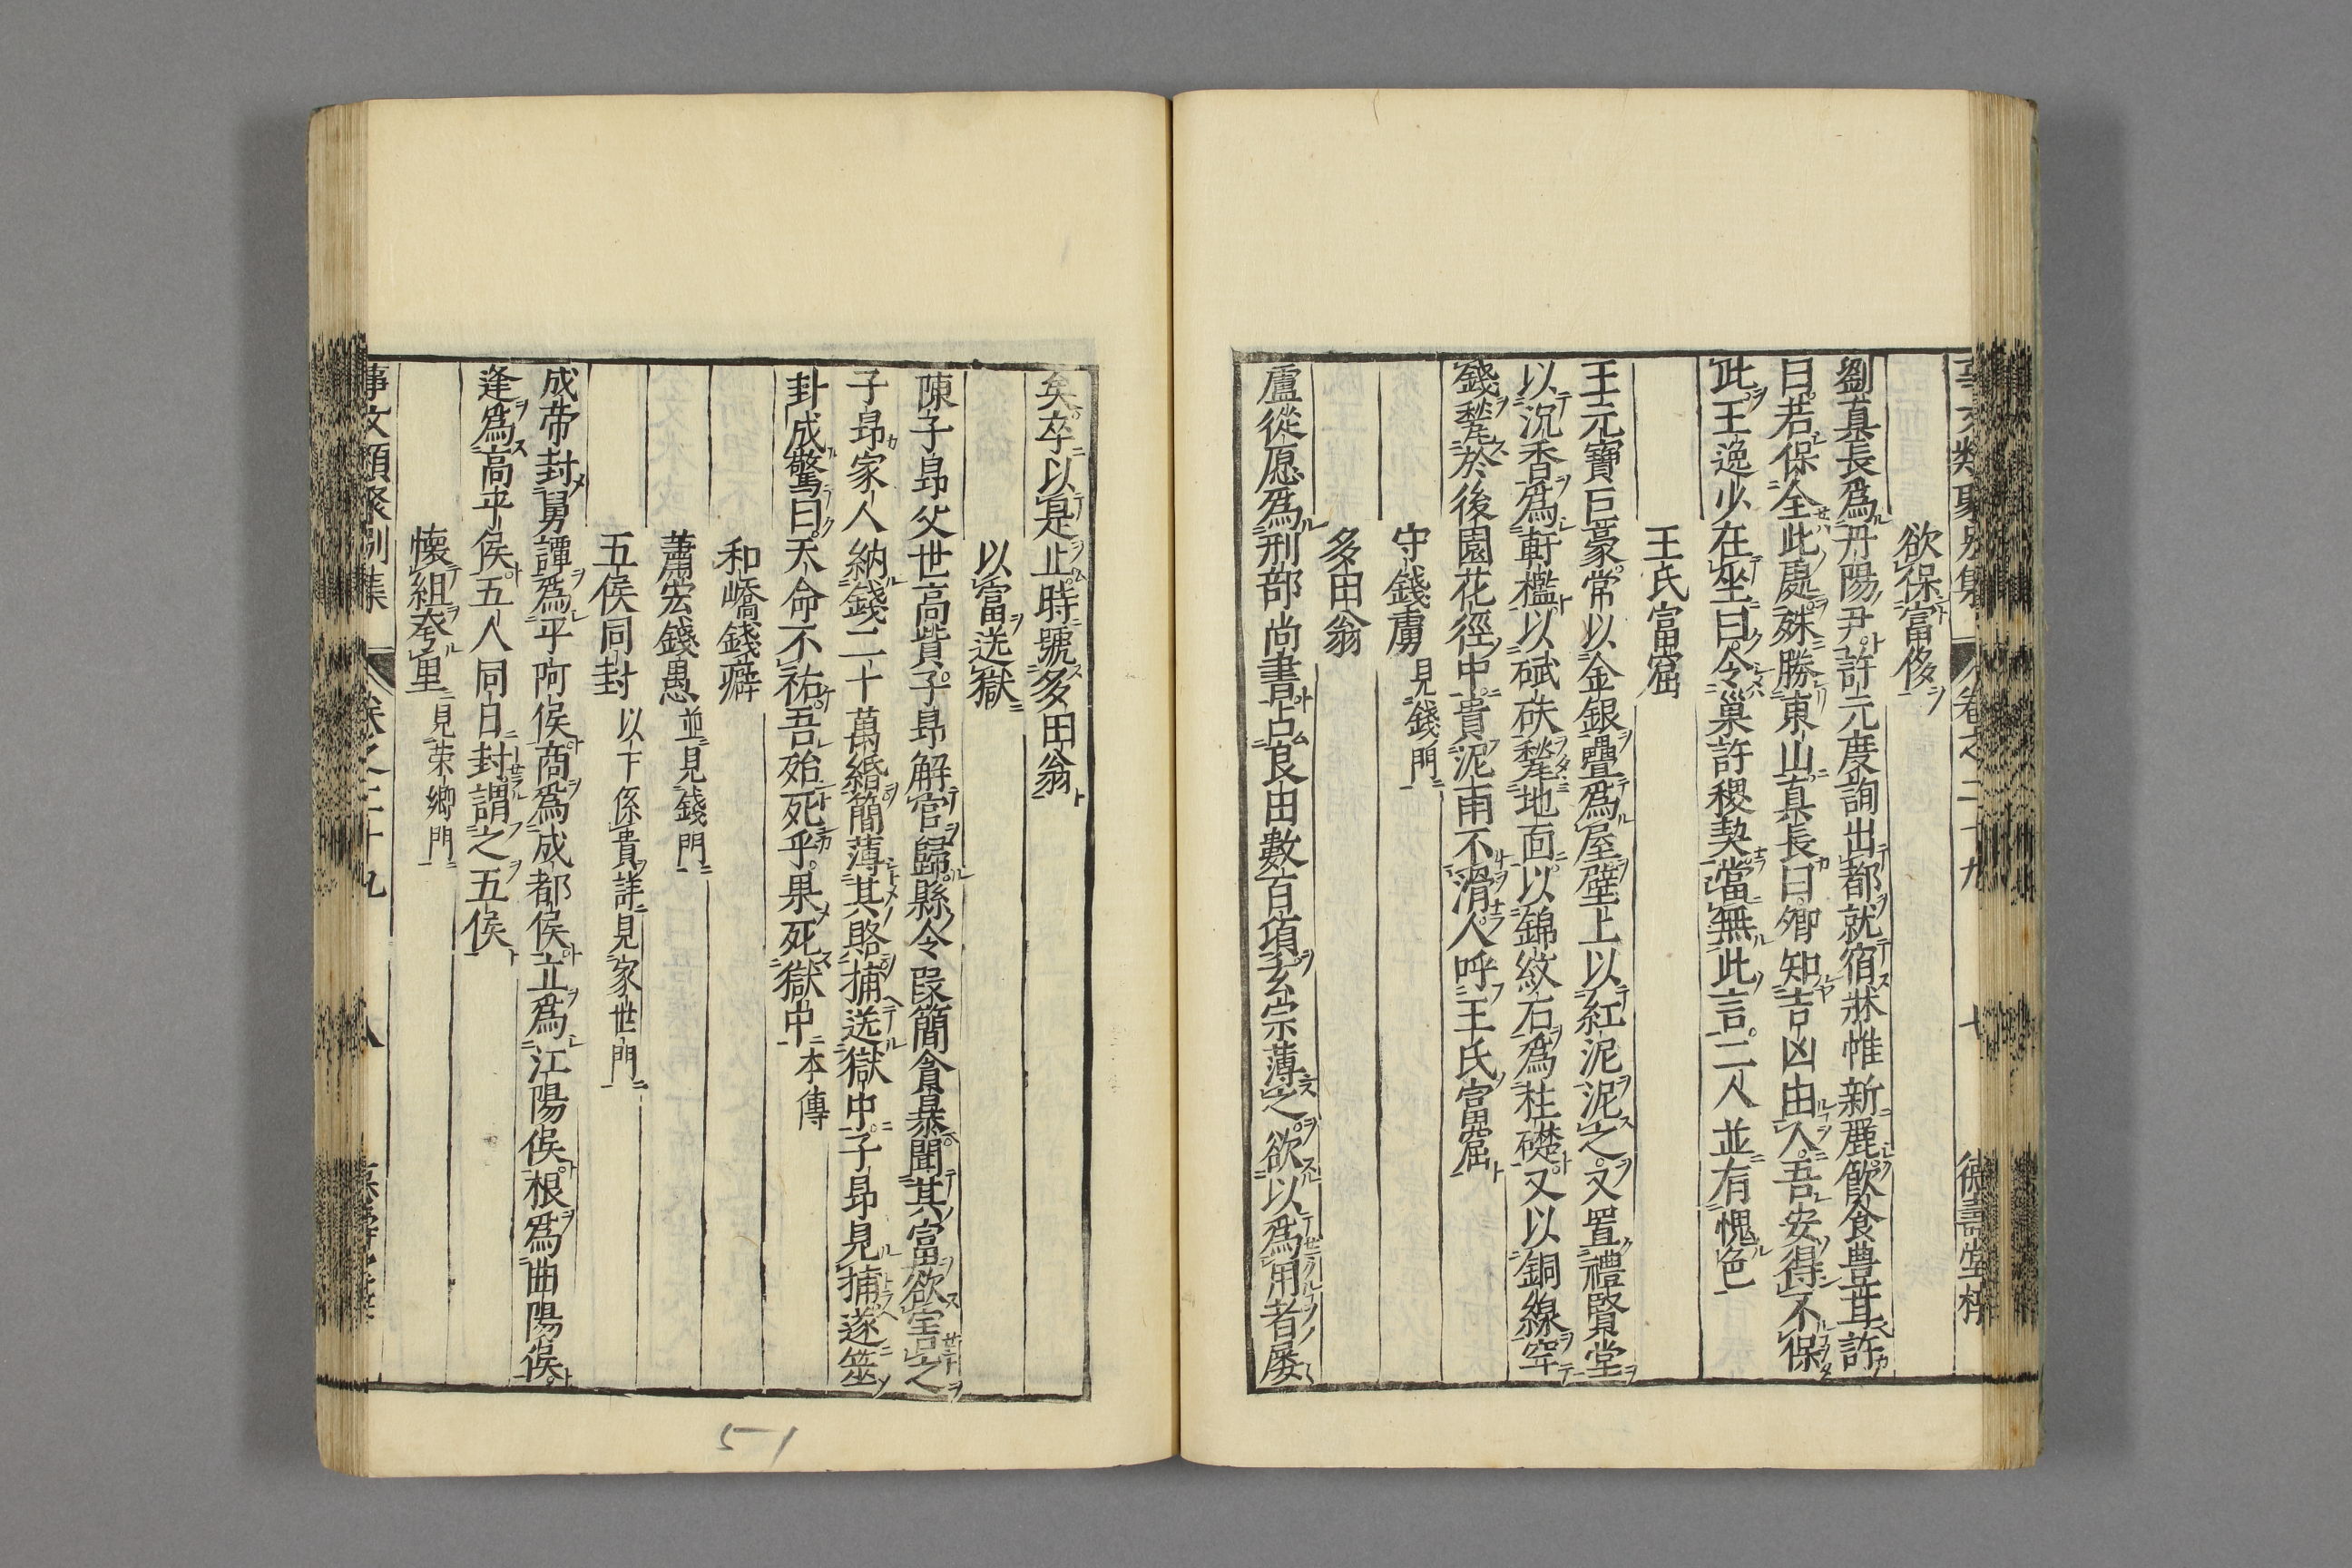 欲保富侈
劉真長爲丹陽尹許元度詢出都就宿牀帷新麗飲食豊甘許
曰若保全此處殊勝東山真長曰卿知吉凶由人吾安得不保
此王逸少在坐曰令巢許稷契當無此言二人並有愧色
王氏富窟
王元寶巨豪常以金銀疊爲屋壁上以紅泥泥之又置禮賢堂
以沉香爲軒檻以碔砆甃地面以錦紋石爲柱礎又以銅線穿
錢甃於後園花徑中貴泥雨不滑人呼王氏富窟
守錢虜 見錢門
多田翁
盧從愿爲刑部尚書占良田數百頃玄宗薄之欲以爲用者屡
矣卒以是止時號多田翁
以富送獄
陳子昂父世高貲子昂解官歸縣令段簡貪暴聞其富欲害之
子昂家人納錢二十萬緡簡薄其賂捕送獄中子昂見捕遂筮
卦成驚曰天命不祐吾殆死乎果死獄中 本傳
和嶠錢癖
蕭宏錢愚 並見錢門
五侯同封 以下係貴詳見家世門
成帝封舅譚爲平阿侯商爲成都侯立爲江陽侯根爲曲陽侯
逢爲高平侯五人同日封謂之五侯
懷組夸里 見荣鄉門
事文類聚別集 卷之二十九 八
51